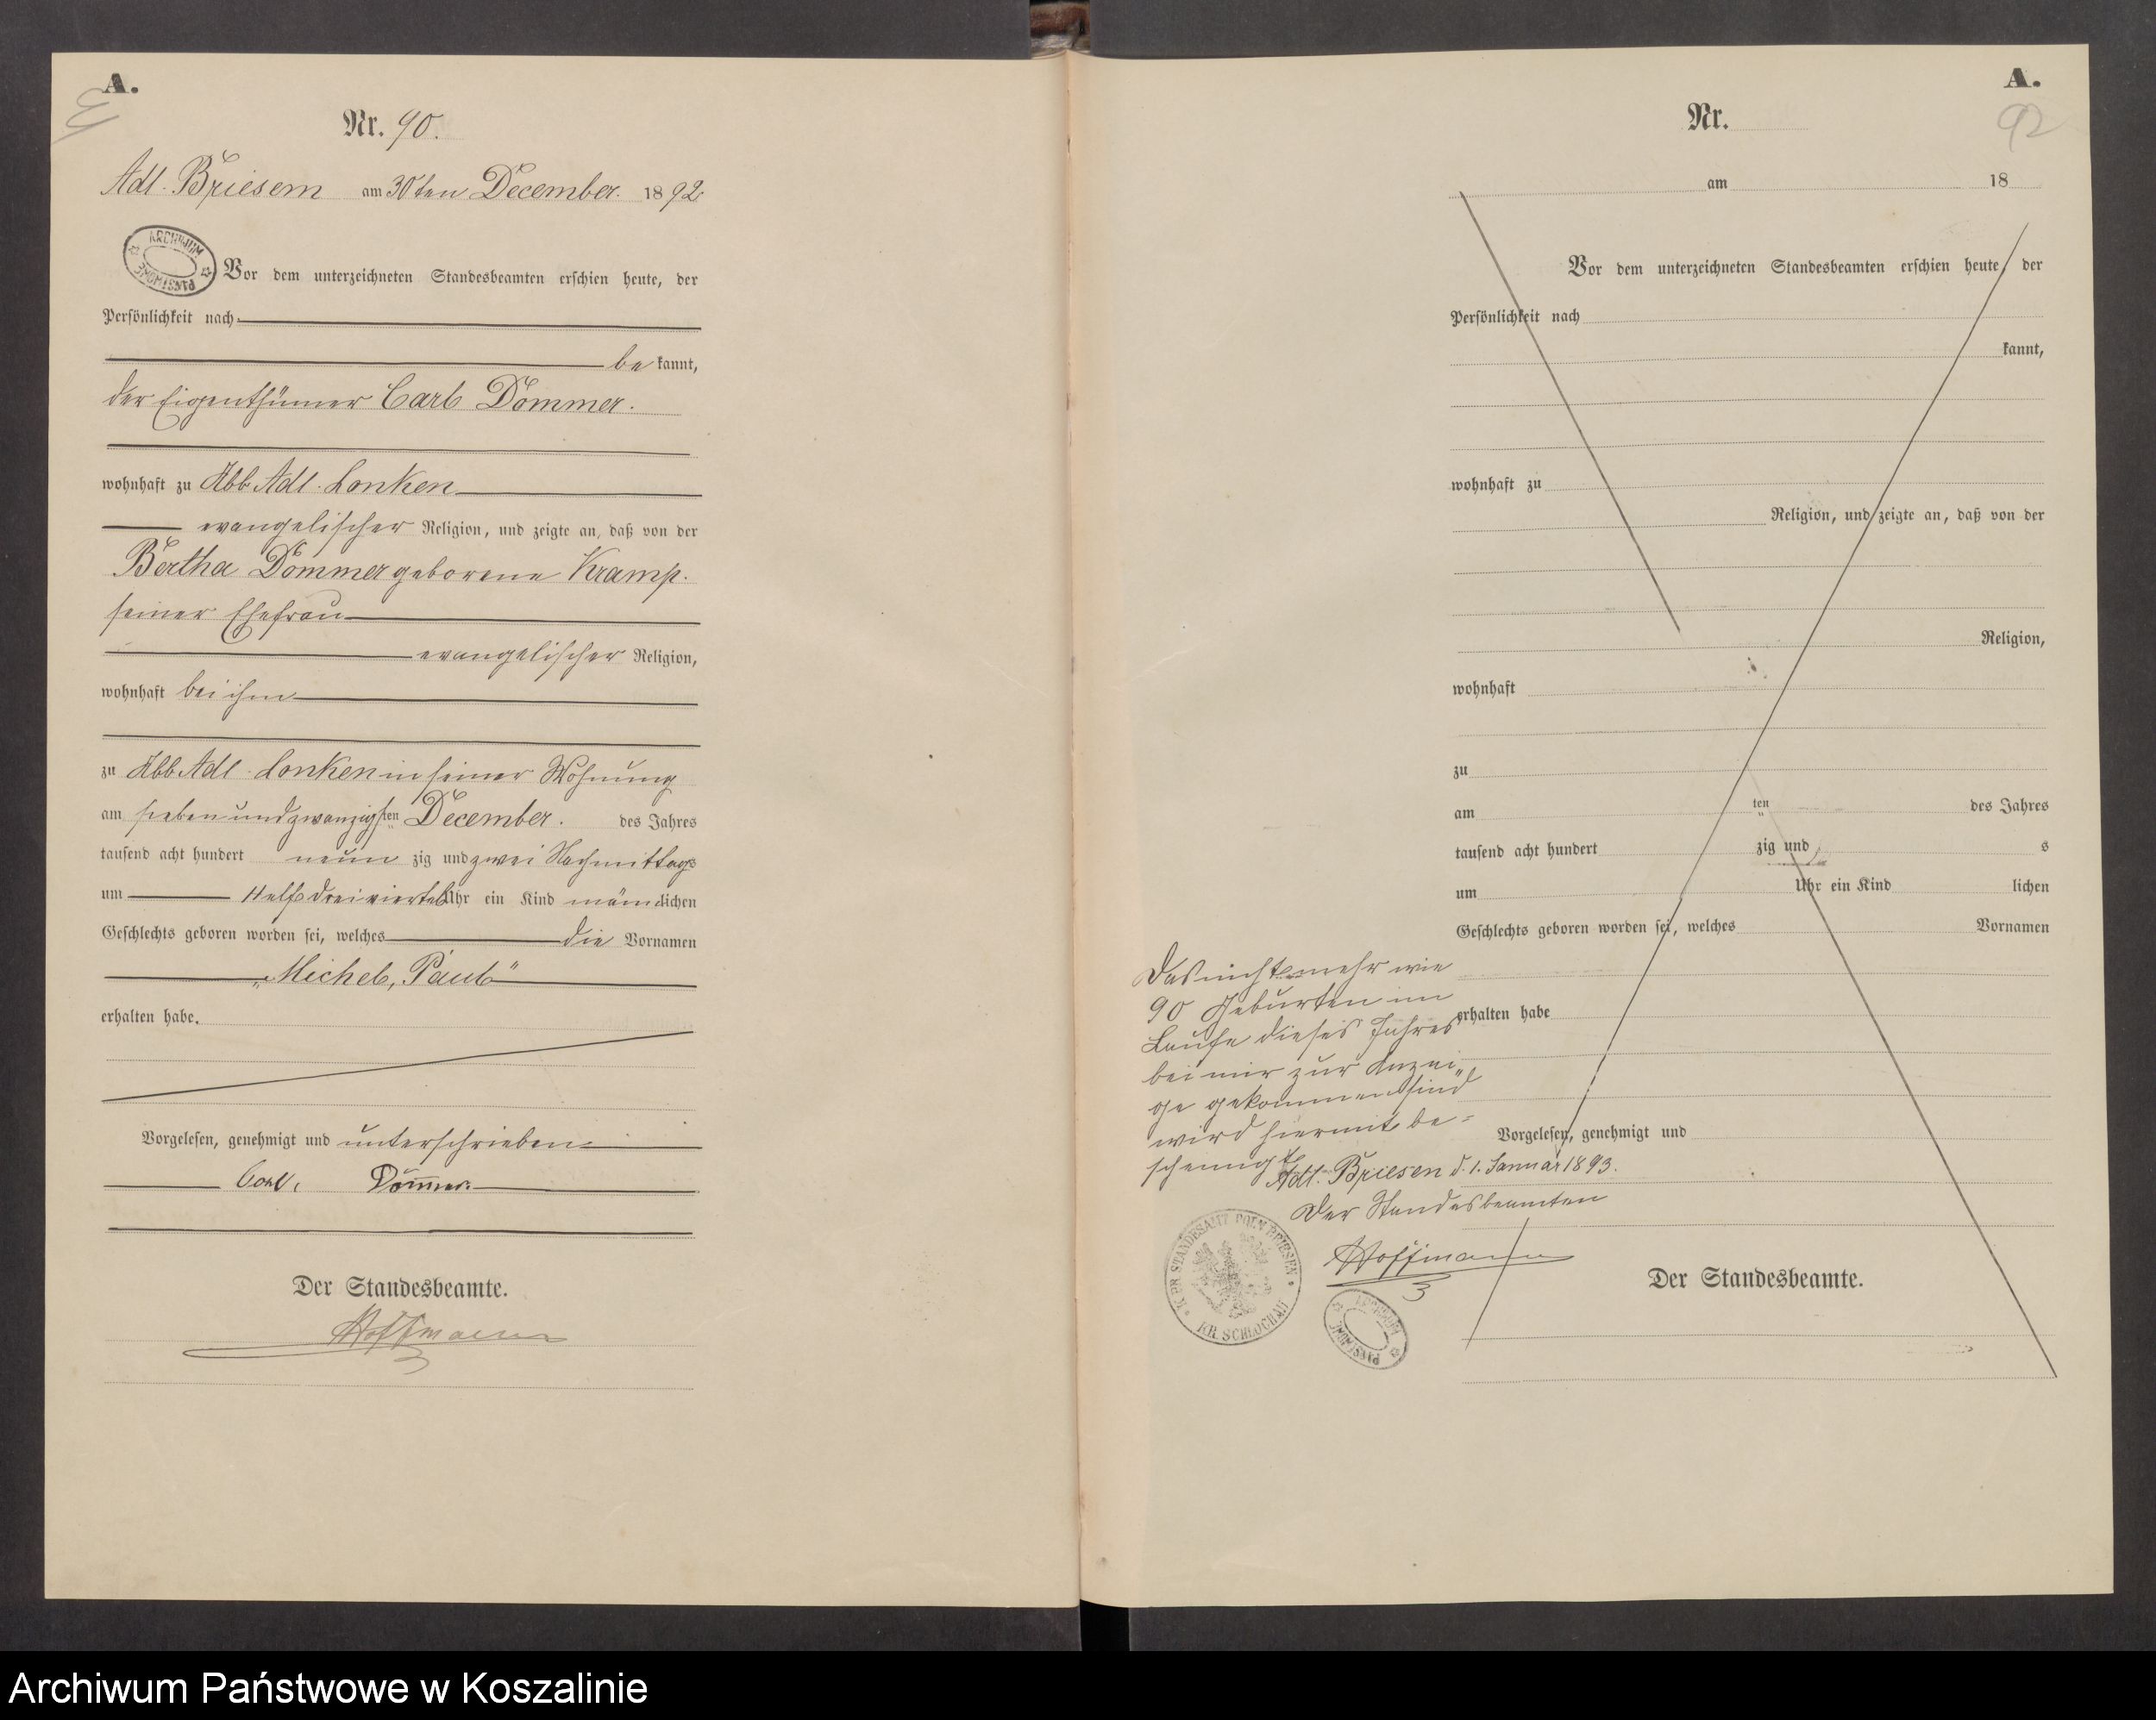 A.
Nr. 90.
Adl. Briesen am 30ten December. 1892
ARCHIWUM PAŃSTWOWE
Vor dem unterzeichneten Standesbeamten erschien heute, der
Persönlichkeit nach
be kannt,
der Eigenthümer Carl Dommer.
wohnhaft zu Abb. Adl. Lonken
evangelischer Religion, und zeigte an, daß von der
Bertha Dommer geborene Kramp.
seiner Ehefrau
evangelischer Religion,
wohnhaft bei ihm
zu Abb. Adl. Lonken in seiner Wohnung
am sieben und zwanzigsten December. des Jahres
tausend acht hundert neun zig und zwei Nachmittags
um dreiviertel Uhr ein Kind männlichen
Geschlechts geboren worden sei, welches die Vornamen
„Michel, Paul"
erhalten habe.
Vorgelesen, genehmigt und unterschrieben
Carl Dommer
Der Standesbeamte.
Hoffmann
A.
92
Nr.
am 18
Vor dem unterzeichneten Standesbeamten erschien heute, der
Persönlichkeit nach
kannt,
wohnhaft zu
Religion, und zeigte an, daß von der
Religion,
wohnhaft
zu
am ten des Jahres
tausend acht hundert zig und s
um Uhr ein Kind lichen
Geschlechts geboren worden sei, welches Vornamen
erhalten habe
Vorgelesen, genehmigt und
Der Standesbeamte.
Das nicht mehr wie
90 Geburten im
Laufe dieses Jahres
bei mir zur Anzei
ge gekommen sind
wird hiermit be-
scheinigt
Adl. Briesen d. 1. Januar 1893.
Der Standesbeamten
Hoffmann
K. PR. STANDESAMT POLN BRIESEN
KR. SCHLOCHAU
ARCHIWUM PAŃSTWOWE
Archiwum Państwowe w Koszalinie